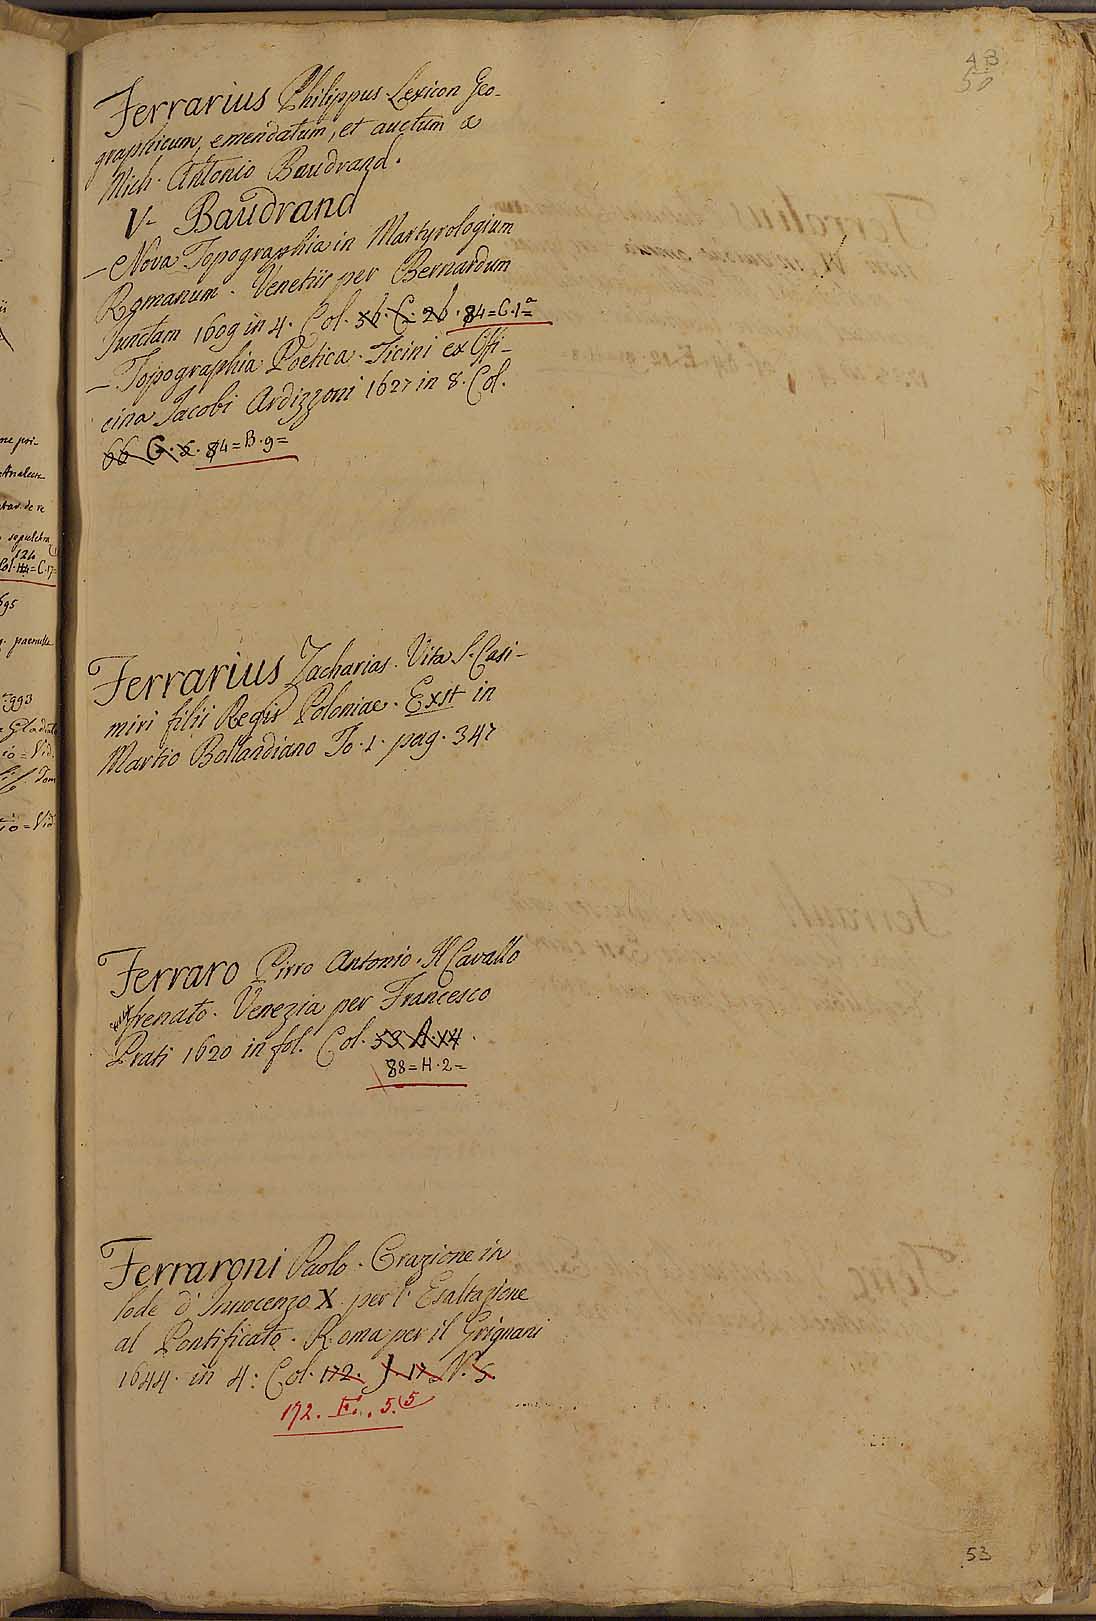 43
50
Ferrarius Philippus. Lexicon Geo-
graphicum, emendatum, et auctum a
Mich. Antonio Baudrand.
V. Baudrand
– Nova Topographia in Martyrologium
Romanum. Venetiis per Bernardum
Junctam 1609 in 4. Col. 56. C. 26. 84=C.1ª=
– Topographia Poetica. Ticini ex Offi-
cina Jacobi Ardizzoni 1627 in 8. Col.
66 G. 84=B.9=
Ferrarius Zacharias. Vita S. Casi-
miri filii Regis Poloniae. Exst in
Martio Bollandiano To. 1. pag. 347
Ferraro Pirro Antonio. Il Cavallo
frenato. Venezia per Francesco
Prati 1620 in fol. Col. 53 A. 14.
88=H.2=
Ferraroni Paolo. Orazione in
lode d'Innocenzo X. per l'Esaltazione
al Pontificato. Roma per il Grignani
1644. in 4: Col. 172. J. 17 N. 5.
172. F. 5. (5
53